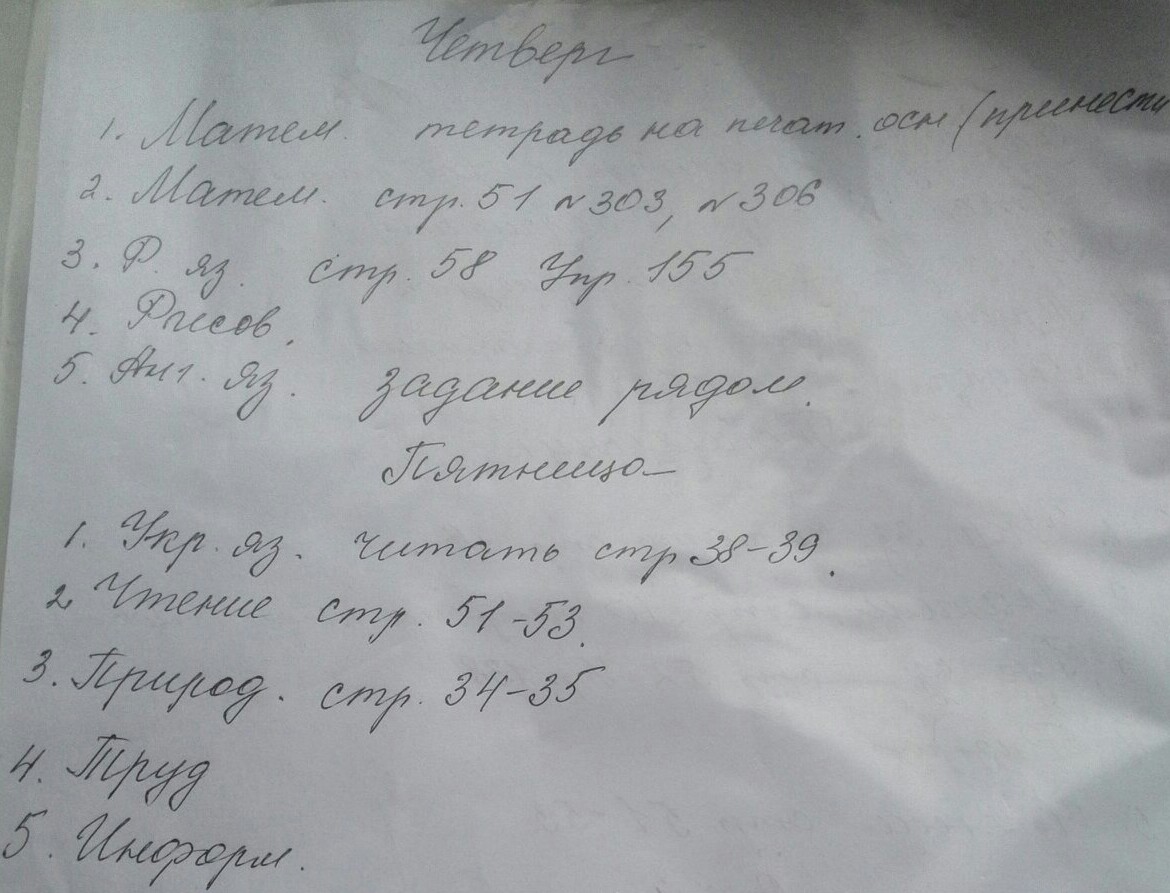 Четверг
1. Матем. тетрадь на печат. осн (принести
2. Матем. стр. 51 №303, №306
3. Р. яз. стр. 58 Упр. 155
4. Рисов.
5. Анг. яз. задание рядом.
Пятница
1. Укр. яз. читать стр 38-39.
2. Чтение стр. 51-53.
3. Природ. стр. 34-35
4. Труд
5. Информ.